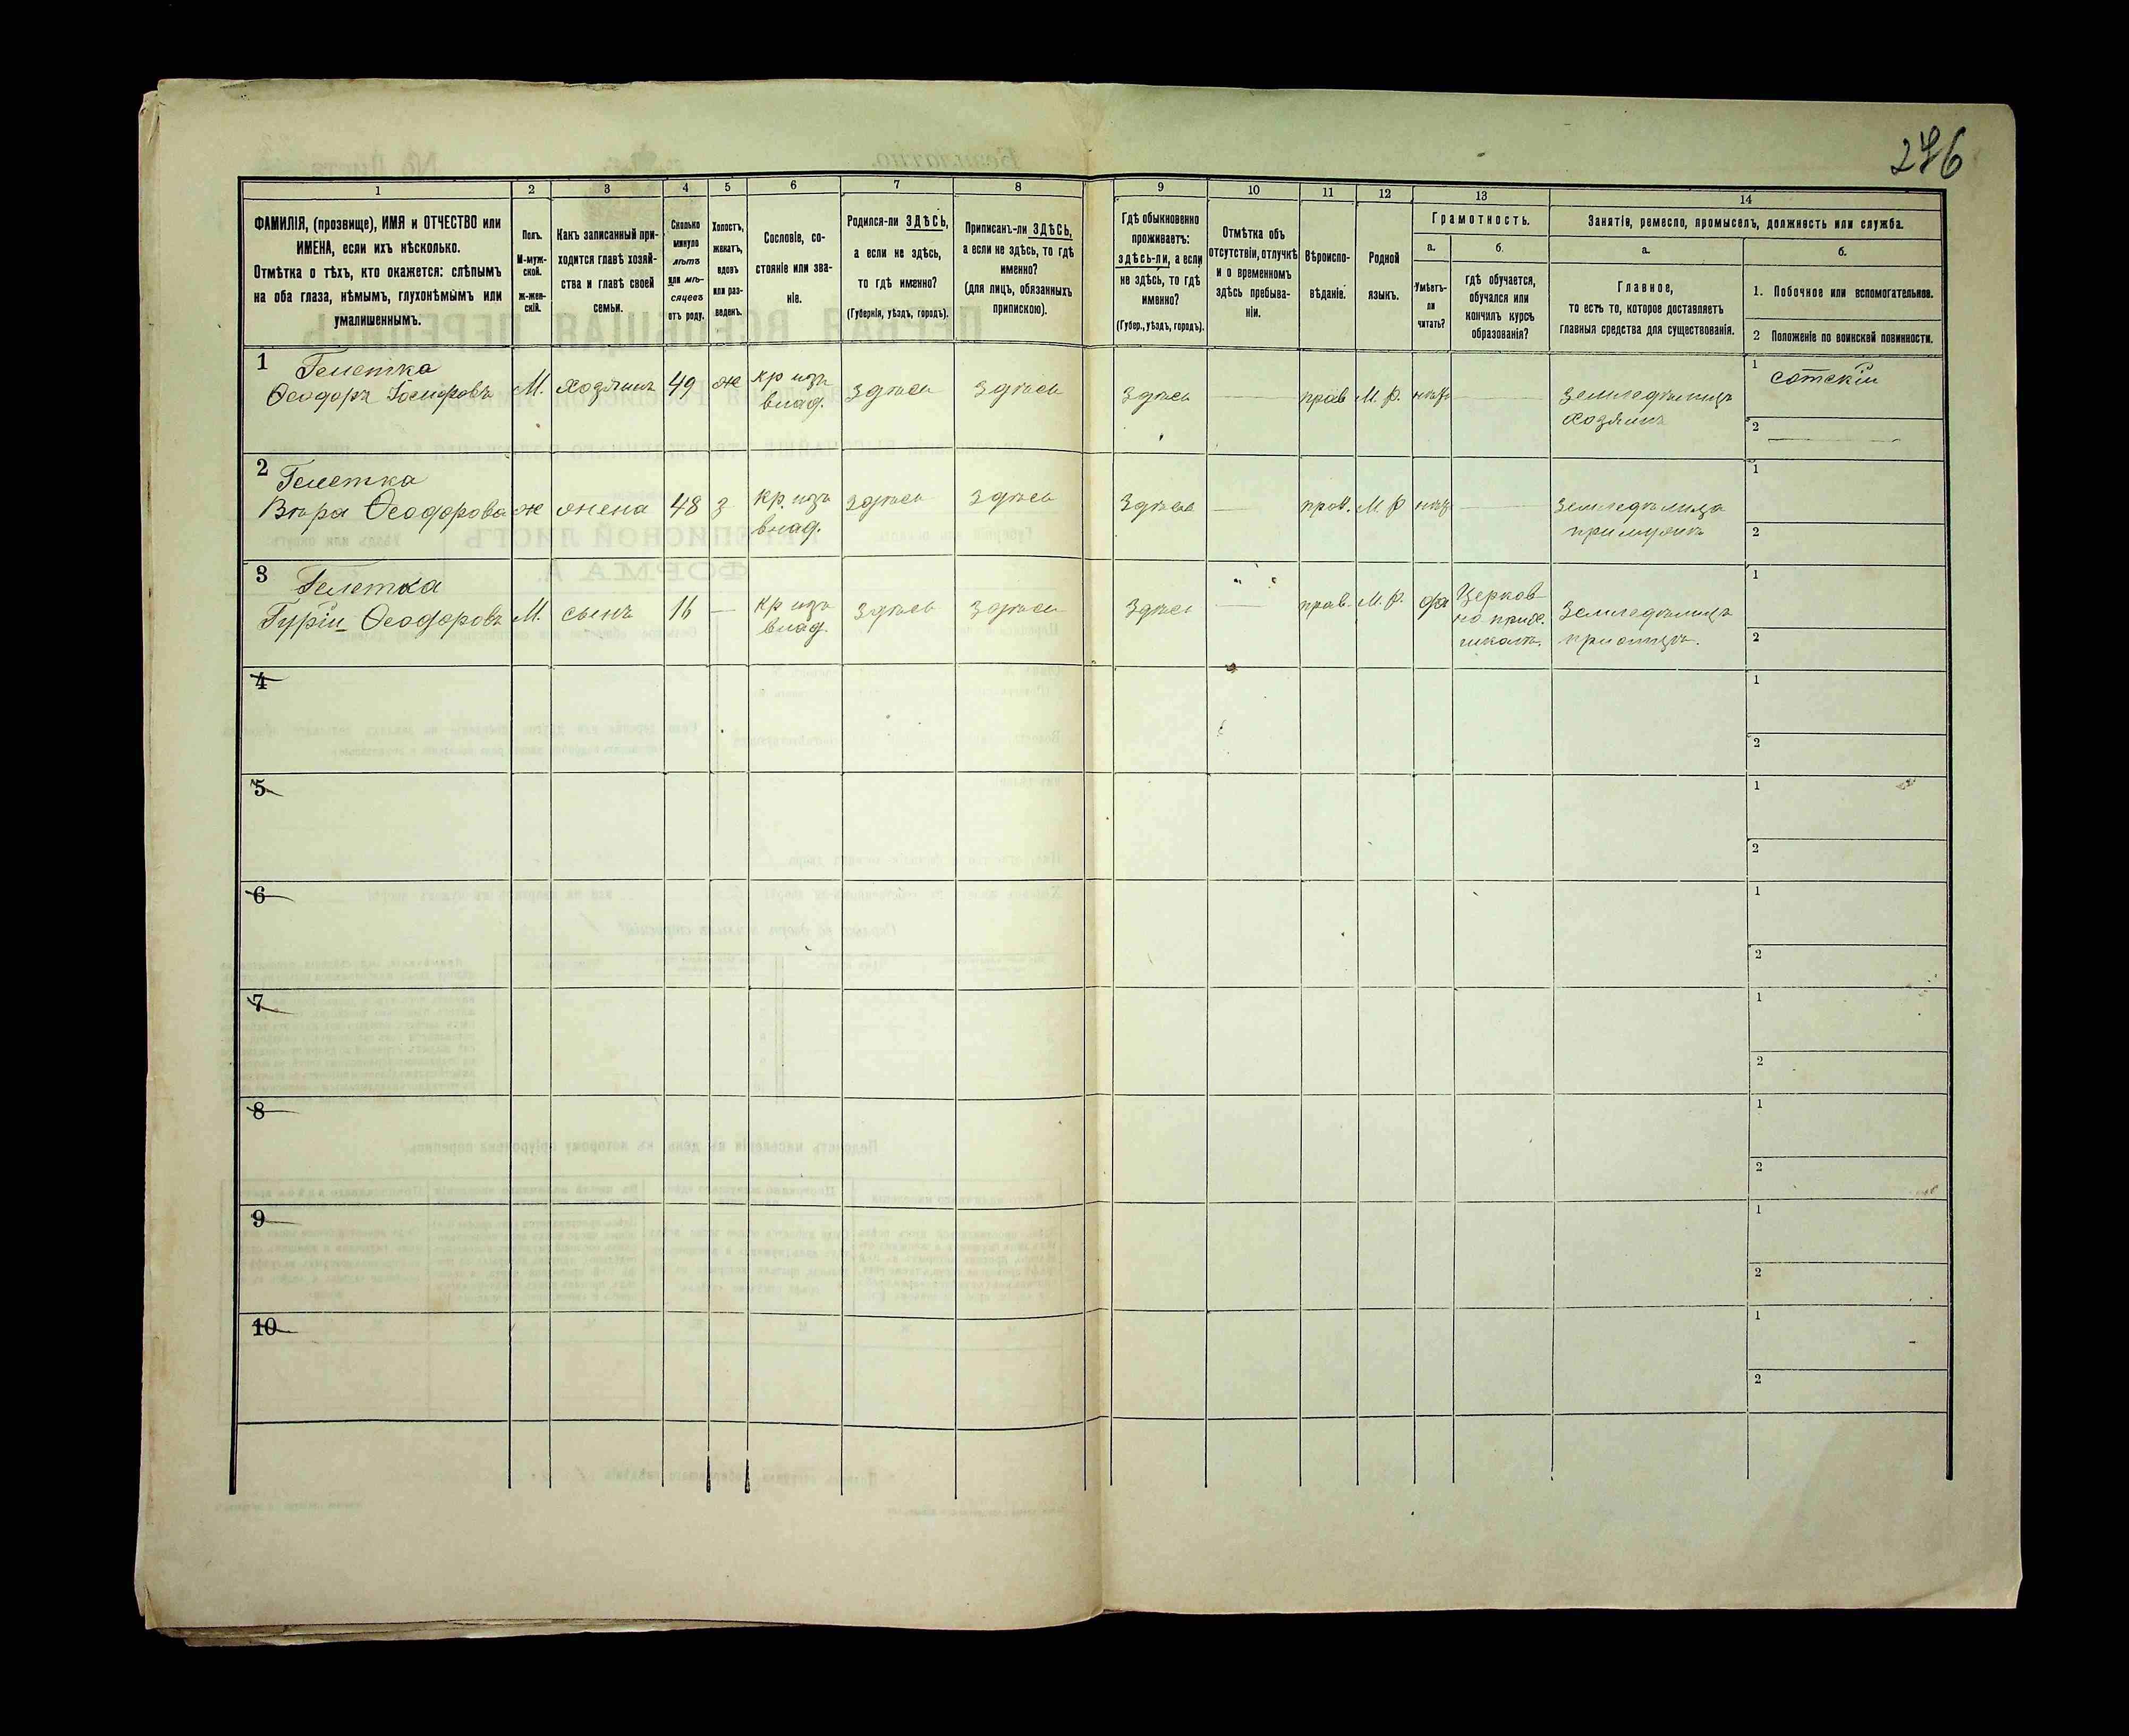 276
1
2
3
4
5
6
7
8
9
10
11
12
13
14
ФАМИЛІЯ, (прозвище), ИМЯ и ОТЧЕСТВО или
ИМЕНА, если ихъ нѣсколько.
Отмѣтка о тѣхъ, кто окажется: слѣпымъ
на оба глаза, нѣмымъ, глухонѣмымъ или
умалишеннымъ.
Полъ.
М-муж-
ской.
ж-жен-
скій.
Какъ записанный при-
ходится главѣ хозяй-
ства и главѣ своей
семьи.
Сколько
минуло
лѣтъ
или мѣ-
сяцевъ
отъ роду.
Холостъ,
женатъ,
вдовъ
или раз-
веденъ.
Сословіе, со-
стояніе или зва-
ніе.
Родился-ли ЗДѢСЬ,
а если не здѣсь,
то гдѣ именно?
(Губернія, уѣздъ, городъ).
Приписанъ-ли ЗДѢСЬ,
а если не здѣсь, то гдѣ
именно?
(для лицъ, обязанныхъ
припискою).
Гдѣ обыкновенно
проживаетъ:
здѣсь-ли, а если
не здѣсь, то гдѣ
именно?
(Губер., уѣздъ, городъ).
Отмѣтка объ
отсутствіи, отлучкѣ
и о временномъ
здѣсь пребыва-
ніи.
Вѣроиспо-
вѣданіе.
Родной
языкъ.
Грамотность.
а.
Умѣетъ-
ли
читать?
б.
гдѣ обучается,
обучался или
кончилъ курсъ
образованія?
Занятіе, ремесло, промыселъ, должность или служба.
а.
Главное,
то есть то, которое доставляетъ
главныя средства для существованія.
б.
1. Побочное или вспомогательное.
2 Положеніе по воинской повинности.
1 Гелетка
Ѳеодоръ
М.
хозяинъ
49
ж
кр изъ
влад.
Здѣсь
Здѣсь
Здѣсь
прав
М. Р.
нѣтъ
Земледѣлецъ
хозяинъ
1 сотскій
2
2 Гелетка
Вѣра Ѳеодорова
ж
жена
48
з
кр. изъ
влад.
Здѣсь
Здѣсь
Здѣсь
прав.
М. Р
нѣтъ
Земледѣлица
при мужѣ
1
2
3 Гелетка
Гурій Ѳеодоровъ
М.
сынъ
16
кр изъ
влад.
Здѣсь
Здѣсь
Здѣсь
прав.
М. Р.
да
Церков-
но прих.
школѣ.
Земледѣлецъ
при отцѣ.
1
2
4
1
2
5
1
2
6
1
2
7
1
2
8
1
2
9
1
2
10
1
2